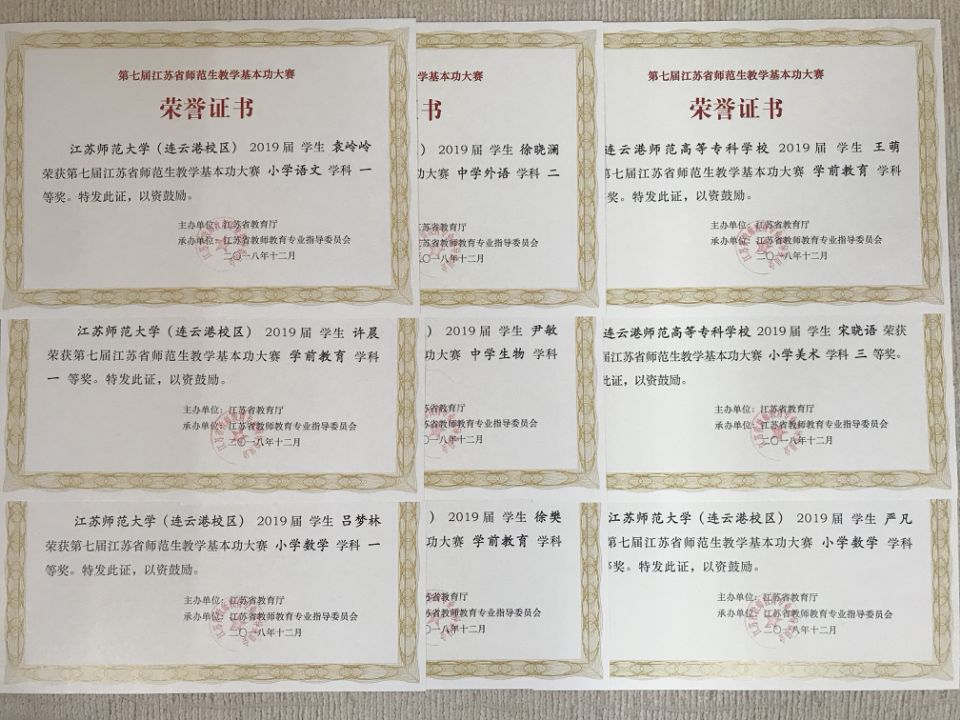 第七届江苏省师范生教学基本功大赛
荣誉证书
江苏师范大学（连云港校区） 2019届 学生 袁岭岭
荣获第七届江苏省师范生教学基本功大赛 小学语文 学科 一
等奖。特发此证，以资鼓励。
主办单位：江苏省教育厅
承办单位：江苏省教师教育专业指导委员会
二〇一八年十二月
学基本功大赛
书
） 2019届 学生 徐晓澜
功大赛 中学外语 学科 二
江苏省教育厅
江苏省教师教育专业指导委员会
二〇一八年十二月
第七届江苏省师范生教学基本功大赛
荣誉证书
连云港师范高等专科学校 2019 届 学生 王萌
第七届江苏省师范生教学基本功大赛 学前教育 学科
奖。特发此证，以资鼓励。
主办单位：江苏省教育厅
承办单位：江苏省教师教育专业指导委员会
二〇一八年十二月
江苏师范大学（连云港校区） 2019届 学生 许晨
荣获第七届江苏省师范生教学基本功大赛 学前教育 学科
一 等奖。特发此证，以资鼓励。
主办单位：江苏省教育厅
承办单位：江苏省教师教育专业指导委员会
二〇一八年十二月
） 2019届 学生 尹敏
功大赛 中学生物 学科
江苏省教育厅
江苏省教师教育专业指导委员会
二〇一八年十二月
连云港师范高等专科学校 2019届 学生 宋晓语 荣获
届江苏省师范生教学基本功大赛 小学美术 学科 三 等奖。
此证，以资鼓励。
主办单位：江苏省教育厅
承办单位：江苏省教师教育专业指导委员会
二〇一八年十二月
江苏师范大学（连云港校区） 2019届 学生 吕梦林
荣获第七届江苏省师范生教学基本功大赛 小学数学 学科 一
等奖。特发此证，以资鼓励。
主办单位：江苏省教育厅
承办单位：江苏省教师教育专业指导委员会
二〇一八年十二月
） 2019届 学生 徐樊
功大赛 学前教育 学科
江苏省教育厅
江苏省教师教育专业指导委员会
二〇一八年十二月
江苏师范大学（连云港校区） 2019届 学生 严凡
第七届江苏省师范生教学基本功大赛 小学数学 学科
等奖。特发此证，以资鼓励。
主办单位：江苏省教育厅
承办单位：江苏省教师教育专业指导委员会
二〇一八年十二月